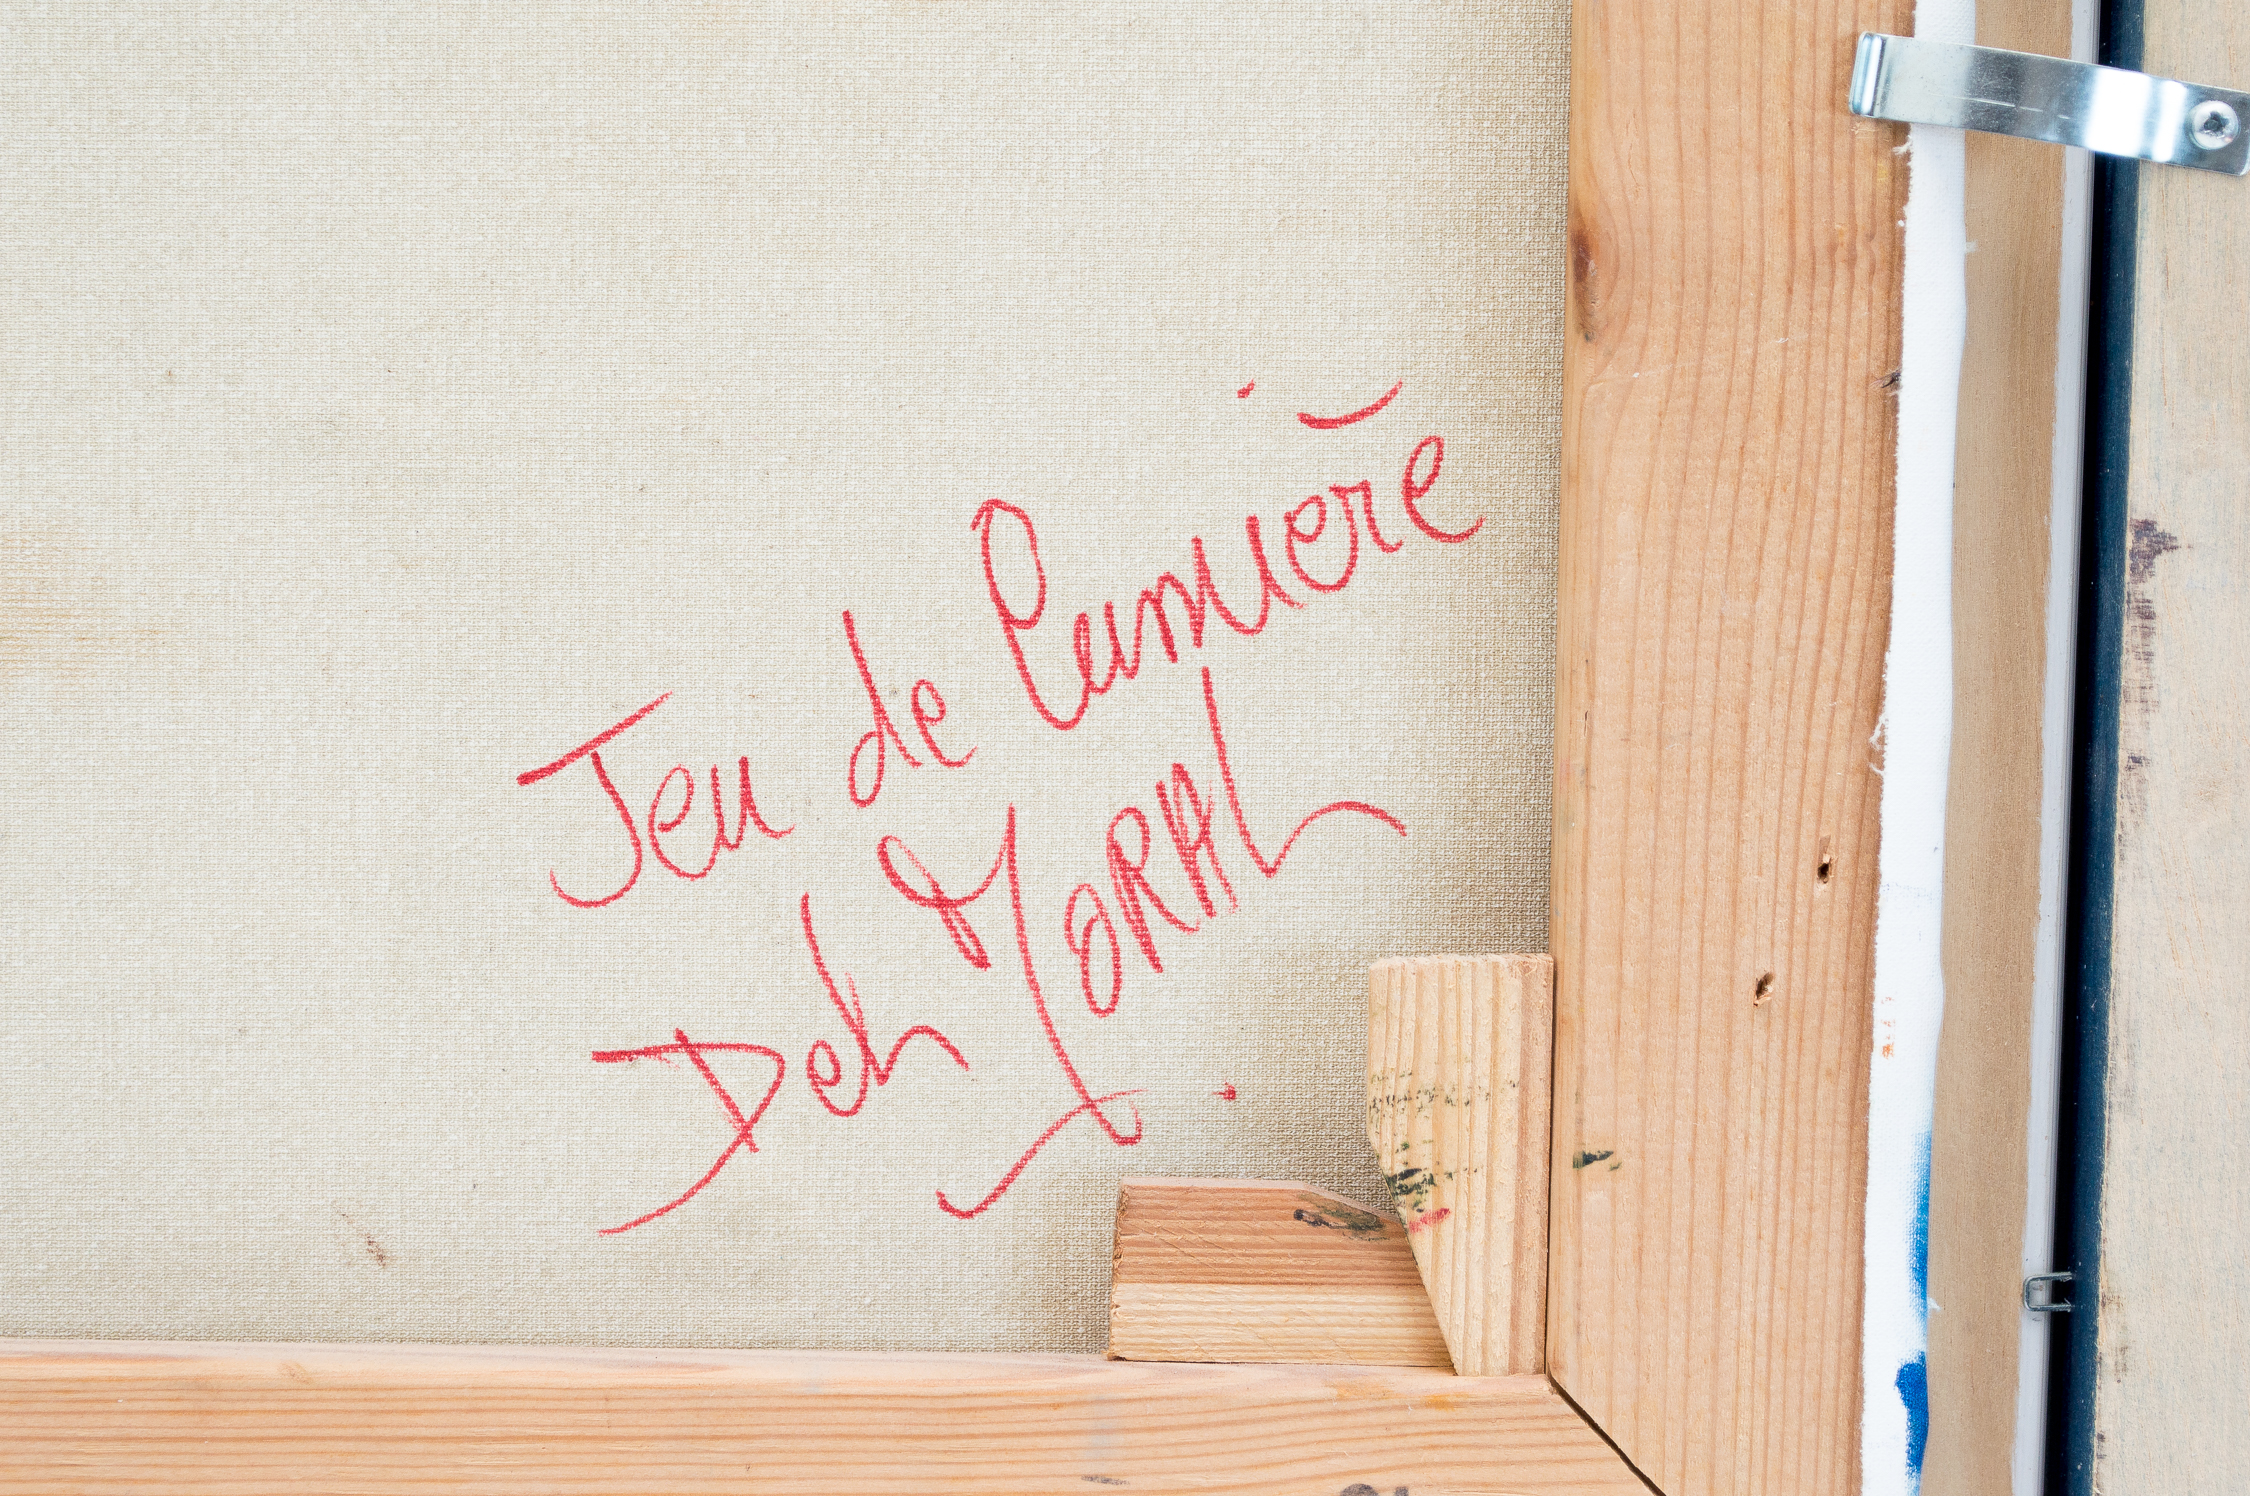 Jeu de lumière
Deh MORAL.